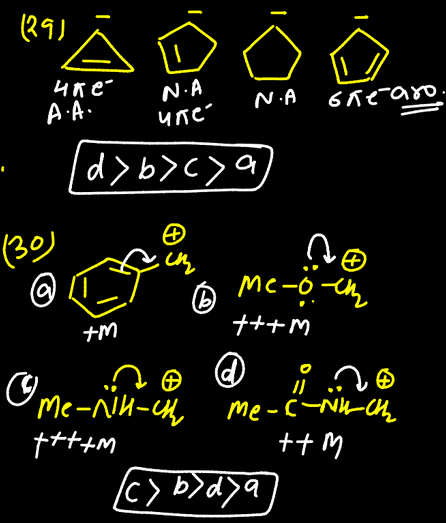 (29)
− − − −
4πe⁻ N.A N.A 6πe⁻ aro.
A.A. 4πe⁻
d > b > c > a
(30)
a ⊕ CH₂
+M
b Me-Ö-CH₂ ⊕
+++M
c Me-NH-CH₂ ⊕
++++M
d O
Me-C-NH-CH₂ ⊕
++M
c > b > d > a